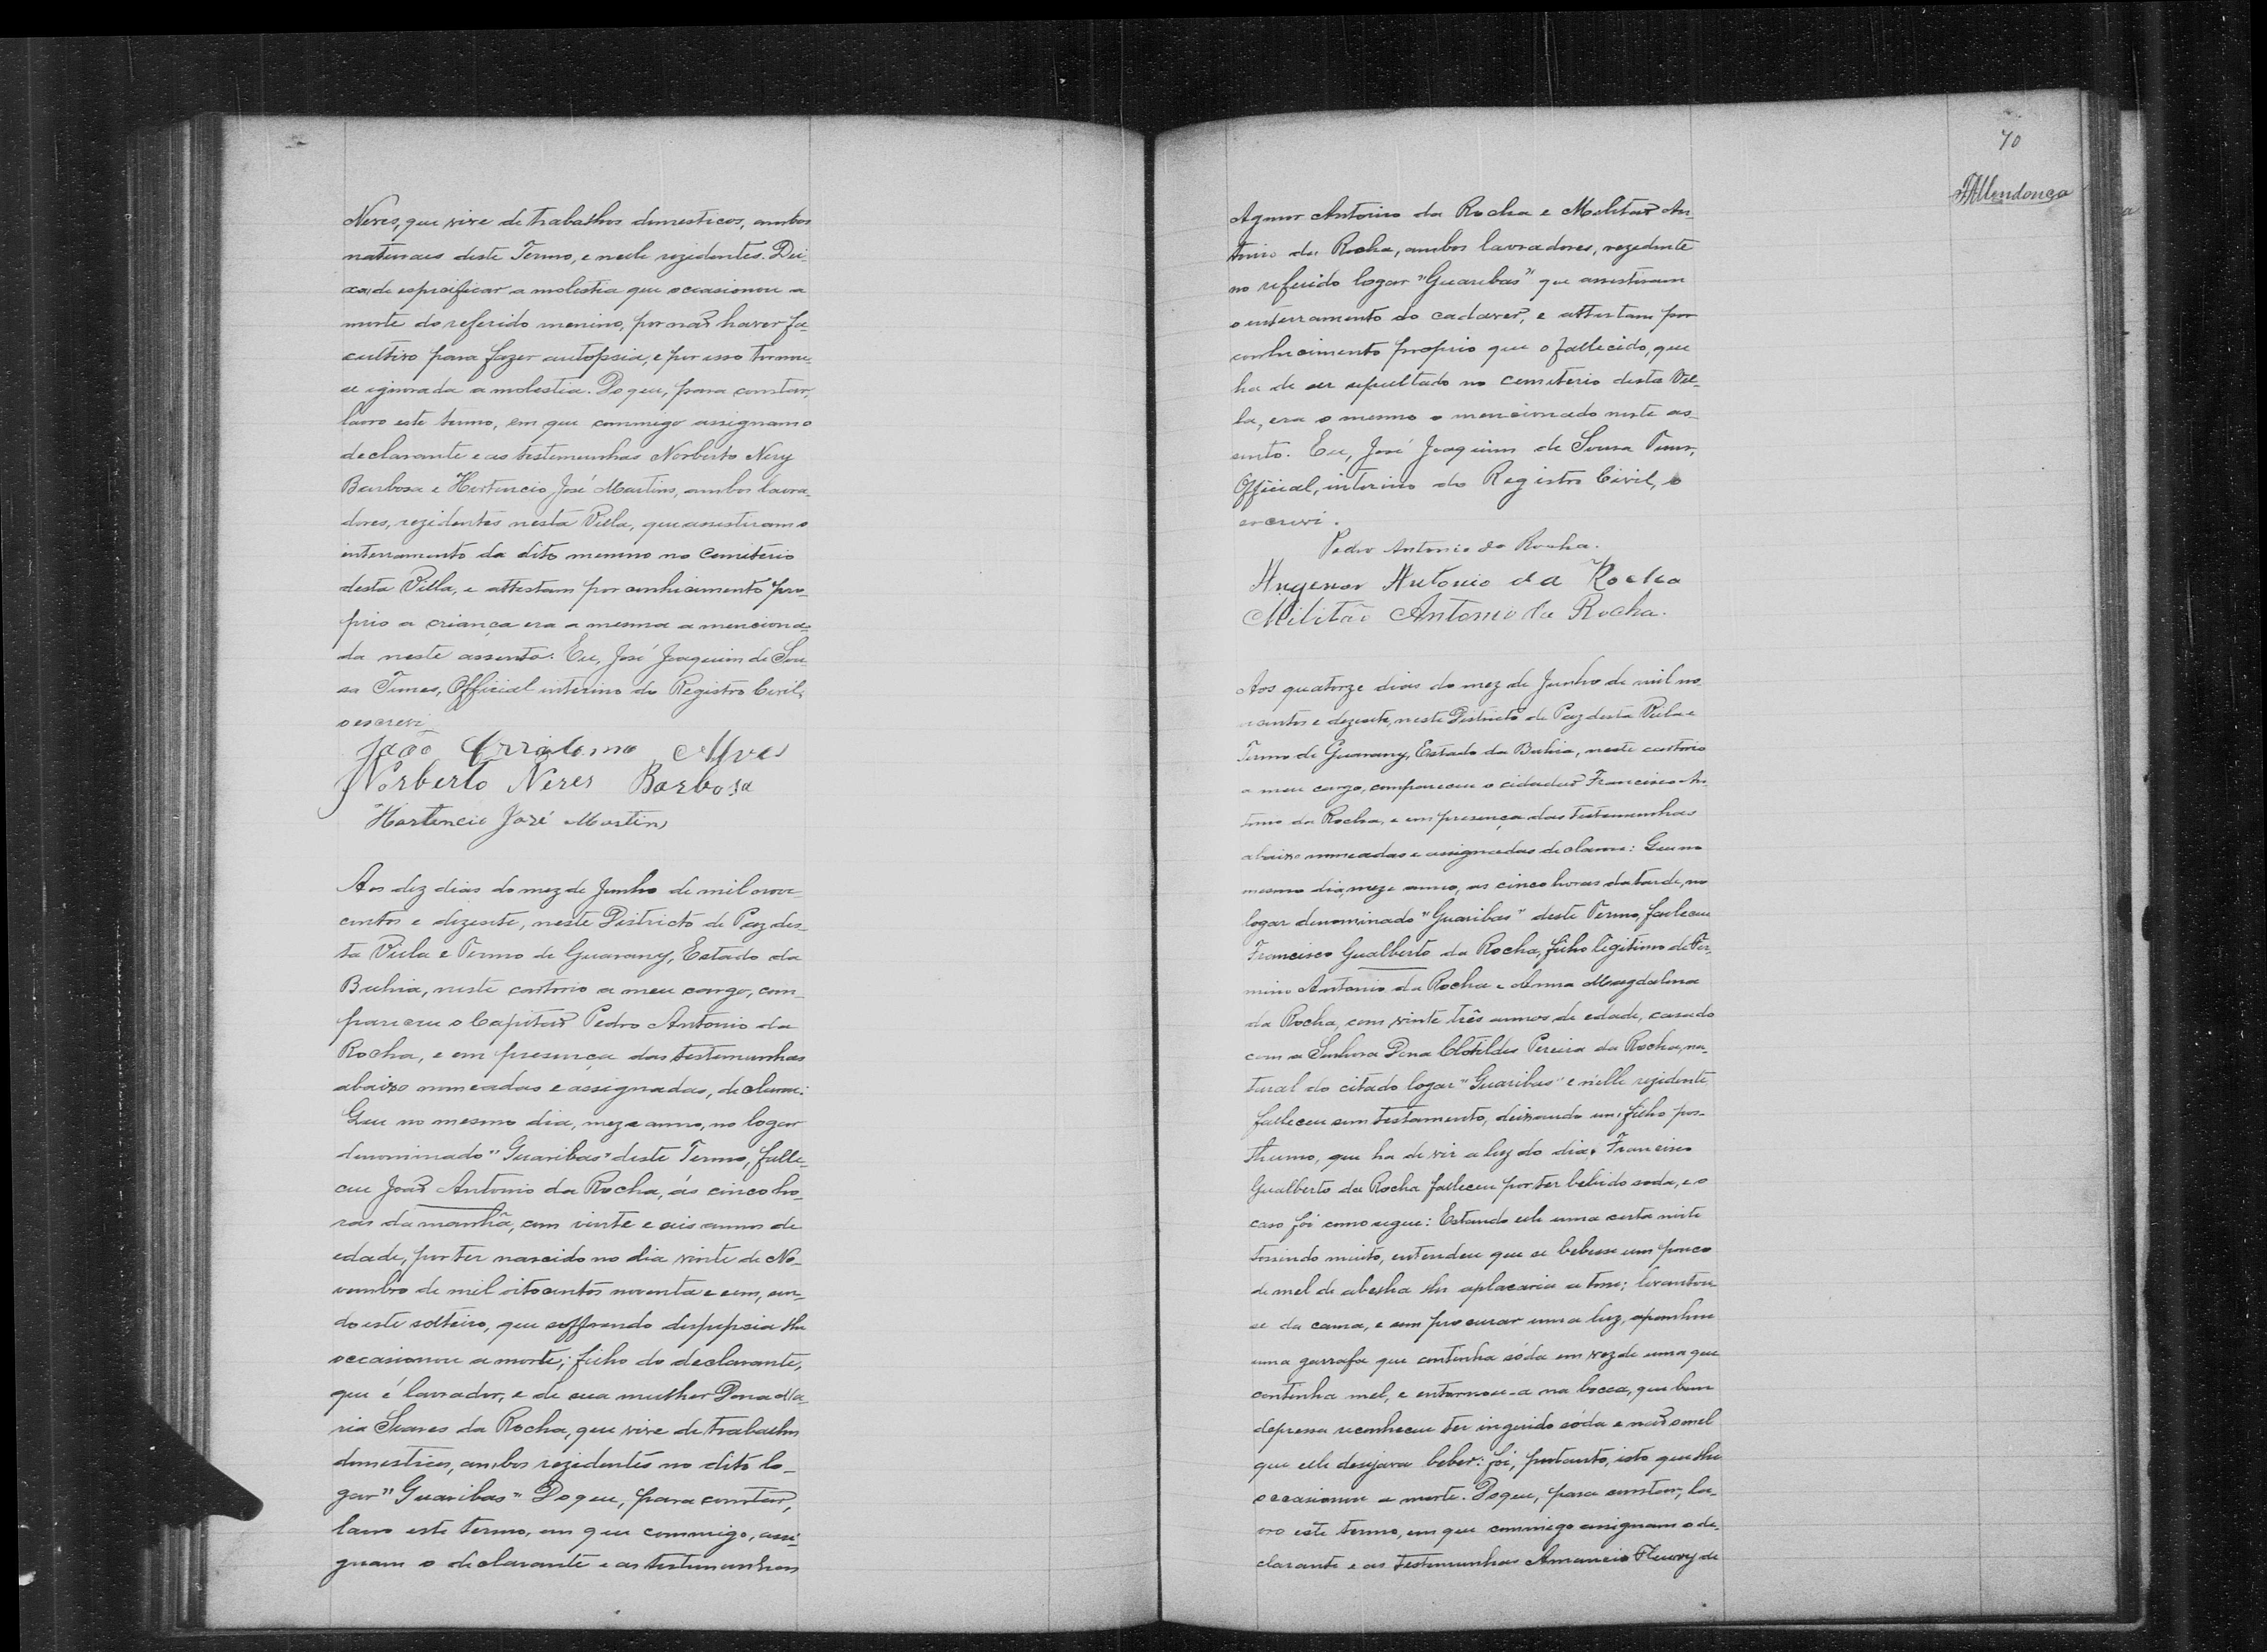 Neres, que vive de trabalhos domesticos, ambos
naturaes deste Termo, e nelle rezidentes. Dei-
xa, de espicificar a molestia que occasionou a
morte do referido menino, por não haver fa-
cultivo para fazer autopsia, e por isso tornou-
se ignorada a molestia. Do que, para constar,
lavro este termo, em que commigo assignam o
declarante e as testemunhas Norberto Nery
Barbosa e Hortencio José Martins, ambos lavra-
dores, rezidentes nesta Villa, que assistiram o
interramento da dito menino no Cemiterio
desta Villa, e attestam por conhecimento pro-
prio a criança era a mesma a menciona-
da neste assento. Eu, José Joaquim de Sou-
sa Tunes, Official interino do Registro Civil,
o escrevi
João Alves
Norberto Neres Barbosa
Hortencio José Martins
Aos dez dias do mez de Junho de mil nove
centos e dezesete, neste Districto de Paz des-
ta Villa e Termo de Guarany, Estado da
Bahia, neste cartorio a meu cargo, com-
pareceu o Capitão Pedro Antonio da
Rocha, e em presença das testemunhas
abaixo nomeadas e assignadas, declarou:
Que no mesmo dia, mez e anno, no logar
denominado "Guaribas" deste Termo, falle-
ceu João Antonio da Rocha, ás cinco ho-
ras da manhã, com vinte e seis annos de
edade, por ter nascido no dia vinte de No-
vembro de mil oitocentos noventa e um, sen-
do este solteiro, que soffrendo despepsia lhe
occasionou a morte; filho do declarante,
que é lavrador, e de sua mulher Dona Ma-
ria Soares da Rocha, que vive de trabalhos
domesticos, ambos rezidentes no dito lo-
gar "Guaribas" Do que, para constar,
lavro este termo, em que commigo, assi-
gnam o declarante e as testemunhas
70
AMendonça
Agenor Antonio da Rocha e Melitão An-
tonio da Rocha, ambos lavradores, rezidente
no referido logar "Guaribas" que assistiram
o enterramento do cadaver, e attestam por
conhecimento proprio que o fallecido, que
ha de ser sepultado no cemiterio desta Vil-
la, era o mesmo o mencionado neste as-
sento. Eu, José Joaquim de Sousa Tunes,
Official, interino do Registro Civil, o
escrevi.
Pedro Antonio da Rocha.
Angenor Antonio da Rocha
Militão Antonio da Rocha.
Aos quatorze dias do mez de Junho de mil no-
vecentos e dezesete, neste Districto de Paz desta Villa e
Termo de Guarany, Estado da Bahia, neste cartorio
a meu cargo, compareceu o cidadão Francisco An-
tonio da Rocha, e em presença das testemunhas
abaixo nomeadas e assignadas declarou: Que no
mesmo dia, mez e anno, as cinco horas da tarde, no
logar denominado "Guaribas" deste Termo, falleceu
Francisco Gualberto da Rocha, filho legitimo de Fir-
mino Antonio da Rocha e Anna Magdalena
da Rocha, com vinte três annos de edade, casado
com a Senhora Dona Clotildes Pereira da Rocha, na-
tural do citado logar "Guaribas" e n'elle rezidente
falleceu sem testamento, deixando um filho pos-
thumo, que ha de vir a luz do dia. Francisco
Gualberto da Rocha falleceu por ter bebido soda, e o
caso foi como segue: Estando elle uma certa noite
tossindo muito, entendeu que se bebesse um pouco
de mel de abelha lhe aplacaria a tosse; levantou-
se da cama, e sem procurar uma luz, apanhou
uma garrafa que continha sóda em vez de uma que
continha mel, e entornou-a na bocca, que bem
depressa reconheceu ter ingerido sóda e não o mel
que elle desejava beber: foi, portanto, isto que lhe
occasionou a morte. Do que, para constar, la-
vro este termo, em que commigo assignam o de-
clarante e as testemunhas Amancio Fleury de